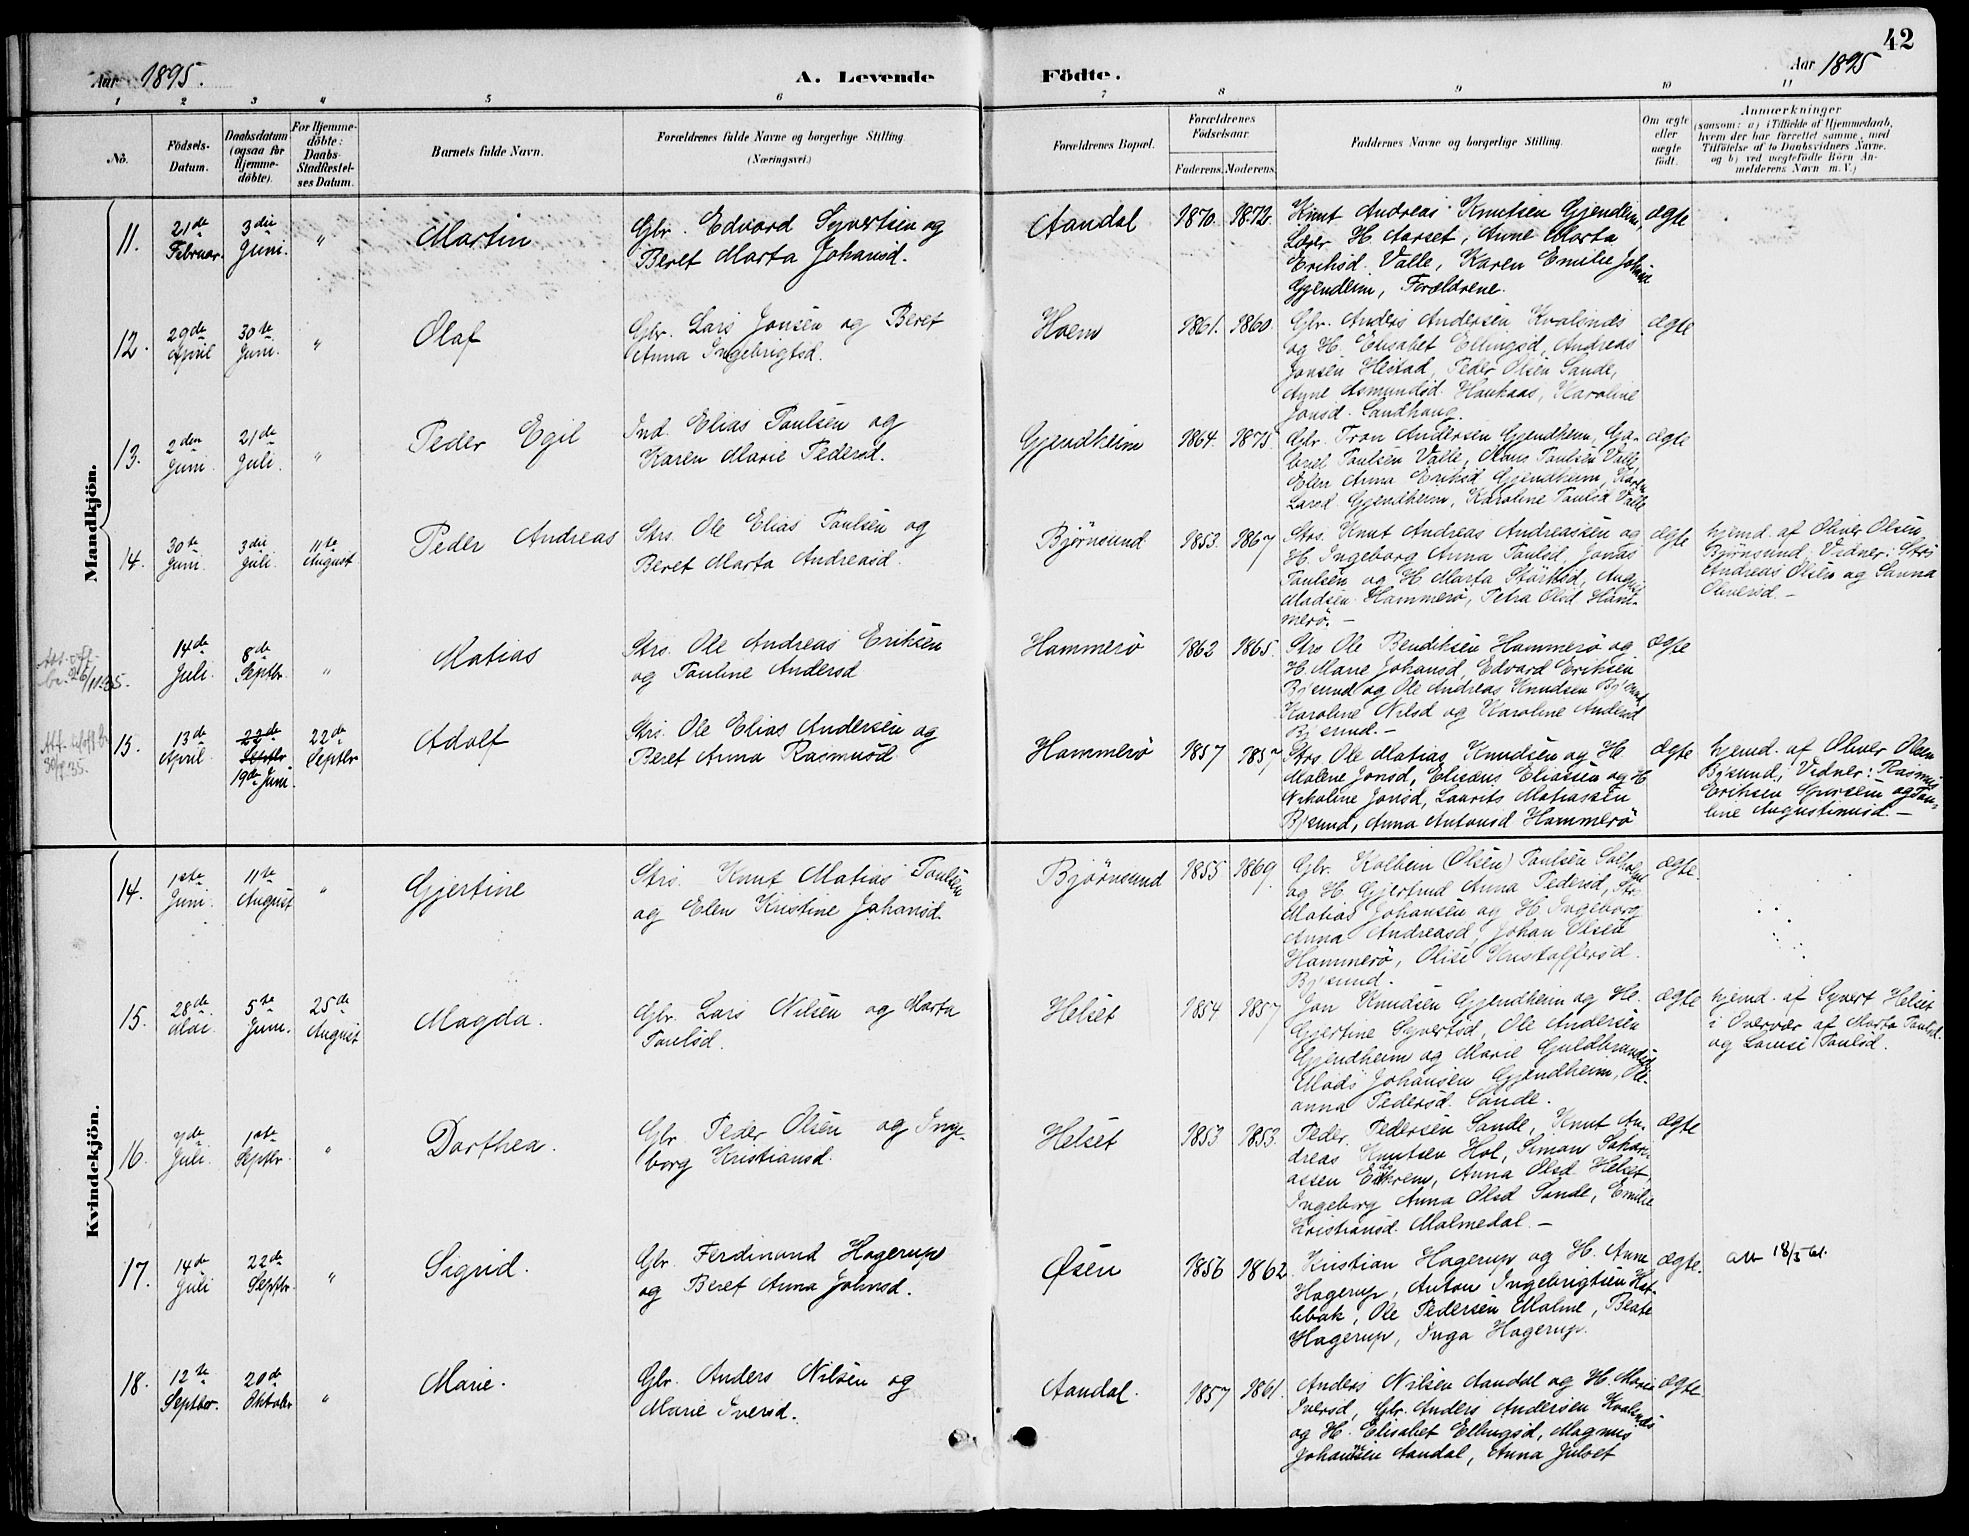 42
Aar 1895.
A. Levende
Födte.
Aar 1895
1 2 3 4 5 6 7 8 9 10 11
No.
Födsels-
Datum.
Daabsdatum
(ogsaa for
Hjemme-
döbte).
For Hjemme-
döbte:
Daabs-
Stadfæstel-
ses Datum.
Barnets fulde Navn.
Forældrenes fulde Navne og borgerlige Stilling.
(Næringsvei.)
Forældrenes Bopæl.
Forældrenes
Födselsaar.
Faderens. Moderens.
Faddernes Navne og borgerlige Stilling.
Om ægte
eller
uægte
födt.
Anmærkninger
(saasom: a) i Tilfælde af Hjemmedaab,
hvem der har forrettet samme, med
Tilföielse af to Daabsvidners Navne.
og b) ved uægtefödte Börn An-
melderens Navn m. V.)
Mandkjön.
11.
21de
Februar.
3die
Juni.
"
Martin
Gbr. Edvard Syvertsen og
Beret Marta Johansd.
Aandal
1870. 1872.
Knut Andreas Knutsen Gjendem,
Lærer H. Aarset, Anne Marta
Eriksd. Valle, Karen Emilie Johansd
Gjendem, Forældrene.
ægte
12.
29de
April
30te
Juni.
"
Olaf
Gbr. Lars Jonsen og Beret
Anna Ingebrigtsd.
Hoem
1861. 1860.
Gbr. Anders Andersen Kvalsnæs
og H. Elisabet Ellingsd, Andreas
Jonsen Hestad, Peder Olsen Sande,
Anne Asmundsd. Haukaas, Karoline
Jonsd. Sandhaug.
ægte
13.
2den
Juni.
21de
Juli.
"
Peder Egil
Ind. Elias Paulsen og
Karen Marie Pedersd.
Gjendheim
1864. 1875.
Gbr. Tron Andersen Gjendheim, Ga-
briel Paulsen Valle, Paulsen Valle,
Elen Anna Eriksd Gjendheim, Karen
Larsd. Gjendheim, Karoline Paulsd Valle
ægte
14.
30te
Juni.
3die
Juli.
11te
August
Peder Andreas
Strs. Ole Elias Paulsen og
Beret Marta Andreasd.
Bjørnsund
1853. 1867
Strs. Knut Andreas Andreassen og
H. Ingeborg Anna Paulsd, Jonas
Paulsen og H. Marta Størksd, August
Madsen Hammerø, Petra Olsd Ham-
merø. -
ægte
hjemd. af Oliver Olsen
Bjørnsund. Vidner: Strs
Andreas Olsen og Sanna
Oliversd. -
26/11.35.
14de
Juli.
8de
Septbr.
"
Matias
Strs. Ole Andreas Eriksen
og Pauline Andersd
Hammerø
1862 1865.
Strs Ole Bendiksen Hammerø og
H. Marie Johansd, Edvard Eriksen
Bj'sund og Ole Andreas Knudsen Bj'sund,
Karoline Nilsd og Karoline Andersd
Bj'sund. -
ægte
15.
13de
April.
22de
Septbr
19de Juni.
22de
Septbr
Adolf
Strs. Ole Elias Andersen og
Beret Anna Rasmusd
Hammerø
1857 1857
Strs. Ole Matias Knudsen og H.
Malene Jonsd, Elisæus Eliassen og H.
Nikoline Jonsd, Laurits Matiassen
Bj'sund, Anna Antonsd Hammerø
ægte
hjemd. af Oliver Olsen
Bj'sund, Vidner: Rasmus
Eriksen og Pau-
line Augustinusd. -
Kvindekjön.
14.
1ste
Juni.
11te
August
"
Gjertine
Strs. Knut Matias Paulsen
og Elen Kristine Johansd.
Bjørnsund
1855 1869.
Gbr. Kolbein (Olsen) Paulsen
og H. Gjertrud Anna Pedersd, Strs
Matias Johansen og H. Ingeborg
Anna Andreasd, Johan Olsen
Hammerø, Olise Kristoffersd.
Bj'sund.
ægte.
15.
28de
Mai.
5te
Juni.
25de
August
Magda.
Gbr. Lars Nilsen og Marta
Paulsd.
Helset
1854 1857
Jon Knudsen Gjendheim og H.
Gjertine Syvertsd, Ole Andersen
Gjendheim og Marie Guldbrandsd
Mads Johansen Gjendheim, Ole-
anna Pedersd. Sande.
ægte
hjemd. af Syvert Helset
i Overvær af Marta Paulsd.
og Lovise Paulsd.
16.
Juli.
1ste
Septbr.
"
Dorthea.
Gbr. Peder Olsen og Inge-
borg Kristiansd.
Helset
1853 1853.
Peder Pedersen Sande, Knut An-
dreas Knutsen Hol, Simon Sakari-
assen Eikrem, Anna Olsd. Helset,
Ingeborg Anna Olsd Sande, Emilie
Kristiansd. Malmedal. -
ægte
17.
14de
Juli
22de
Septbr.
"
Sigrid.
Gbr. Ferdinand Hagerup
og Beret Anna Johnsd.
Øsen
1856 1862
Kristian Hagerup og H. Anne
Hagerup, Anton Ingebrigtsen Hat-
lebak, Ole Pedersen Malme, Beate
Hagerup, Inga Hagerup.
ægte.
att 18/5 61.
18.
12te
Septbr.
20de
Oktober
"
Marie.
Gbr. Anders Nilsen og
Marie Iversd.
Aandal.
1857 1861.
Anders Nilsen Aandal og H. Marie
Iversd, Gbr. Anders Andersen Kvalsnæs
og H. Elisabet Ellingsd, Magnus
Johannsen Aandal, Anna Julset
ægte